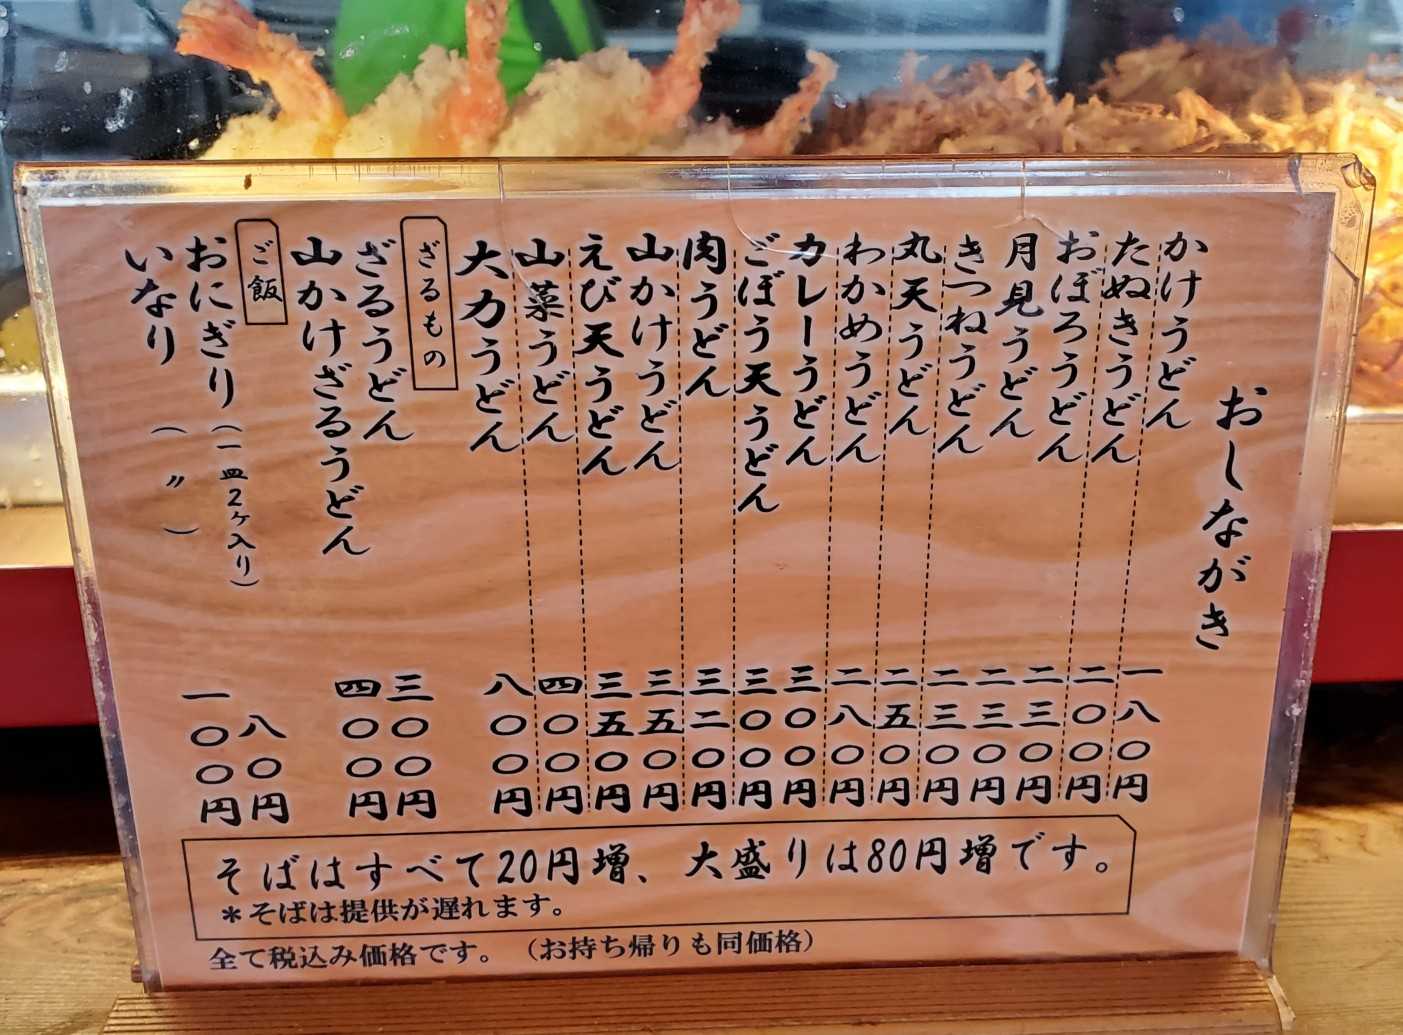 おしながき
かけうどん 一八〇円
たぬきうどん 二〇〇円
おぼろうどん 二三〇円
月見うどん 二三〇円
きつねうどん 二三〇円
丸天うどん 二五〇円
わかめうどん 二八〇円
カレーうどん 三〇〇円
ごぼう天うどん 三〇〇円
肉うどん 三二〇円
山かけうどん 三五〇円
えび天うどん 三五〇円
山菜うどん 四〇〇円
大力うどん 八〇〇円
ざるもの
ざるうどん 三〇〇円
山かけざるうどん 四〇〇円
ご飯
おにぎり(一皿2ヶ入り) 八〇円
いなり(〃) 一〇〇円
そばはすべて20円増、大盛りは80円増です。
＊そばは提供が遅れます。
全て税込み価格です。（お持ち帰りも同価格）